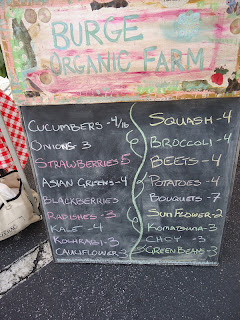 BURGE
ORGANIC FARM
CUCUMBERS - 4/lb
ONIONS 3
STRAWBERRIES 5
ASIAN GREENS - 4
BLACKBERRIES
RADISHES - 3
KALE - 4
KOHLRABI - 3
CAULIFLOWER - 3
SQUASH - 4
BROCCOLI - 4
BEETS - 4
POTATOES - 4
BOUQUETS - 7
SUNFLOWER - 2
KOMATSUNA - 3
CHOY - 3
GREEN BEANS - 3